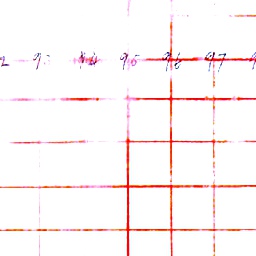 93 94 95 96 97